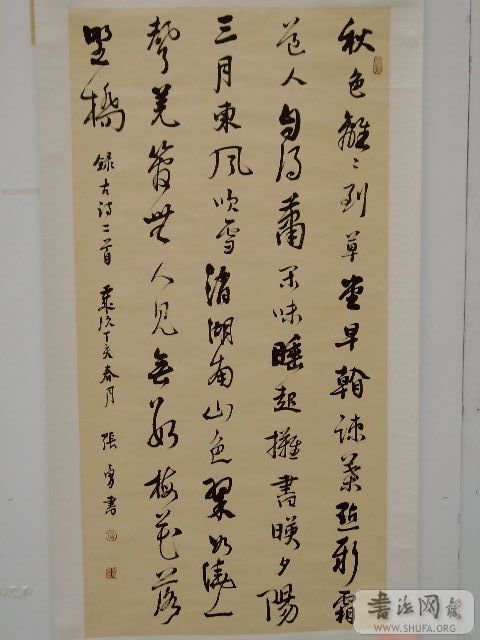 秋色離〻到草堂早翰疎葉新霜
道人自得蕭閑味睡起擁書暎夕陽
三月東風吹雪消湖南山色翠如澆一
聲羌管無人見無數梅花落
野橋
録古詩二首 歲次丁亥春月 張勇書
書法网
WWW.SHUFA.ORG